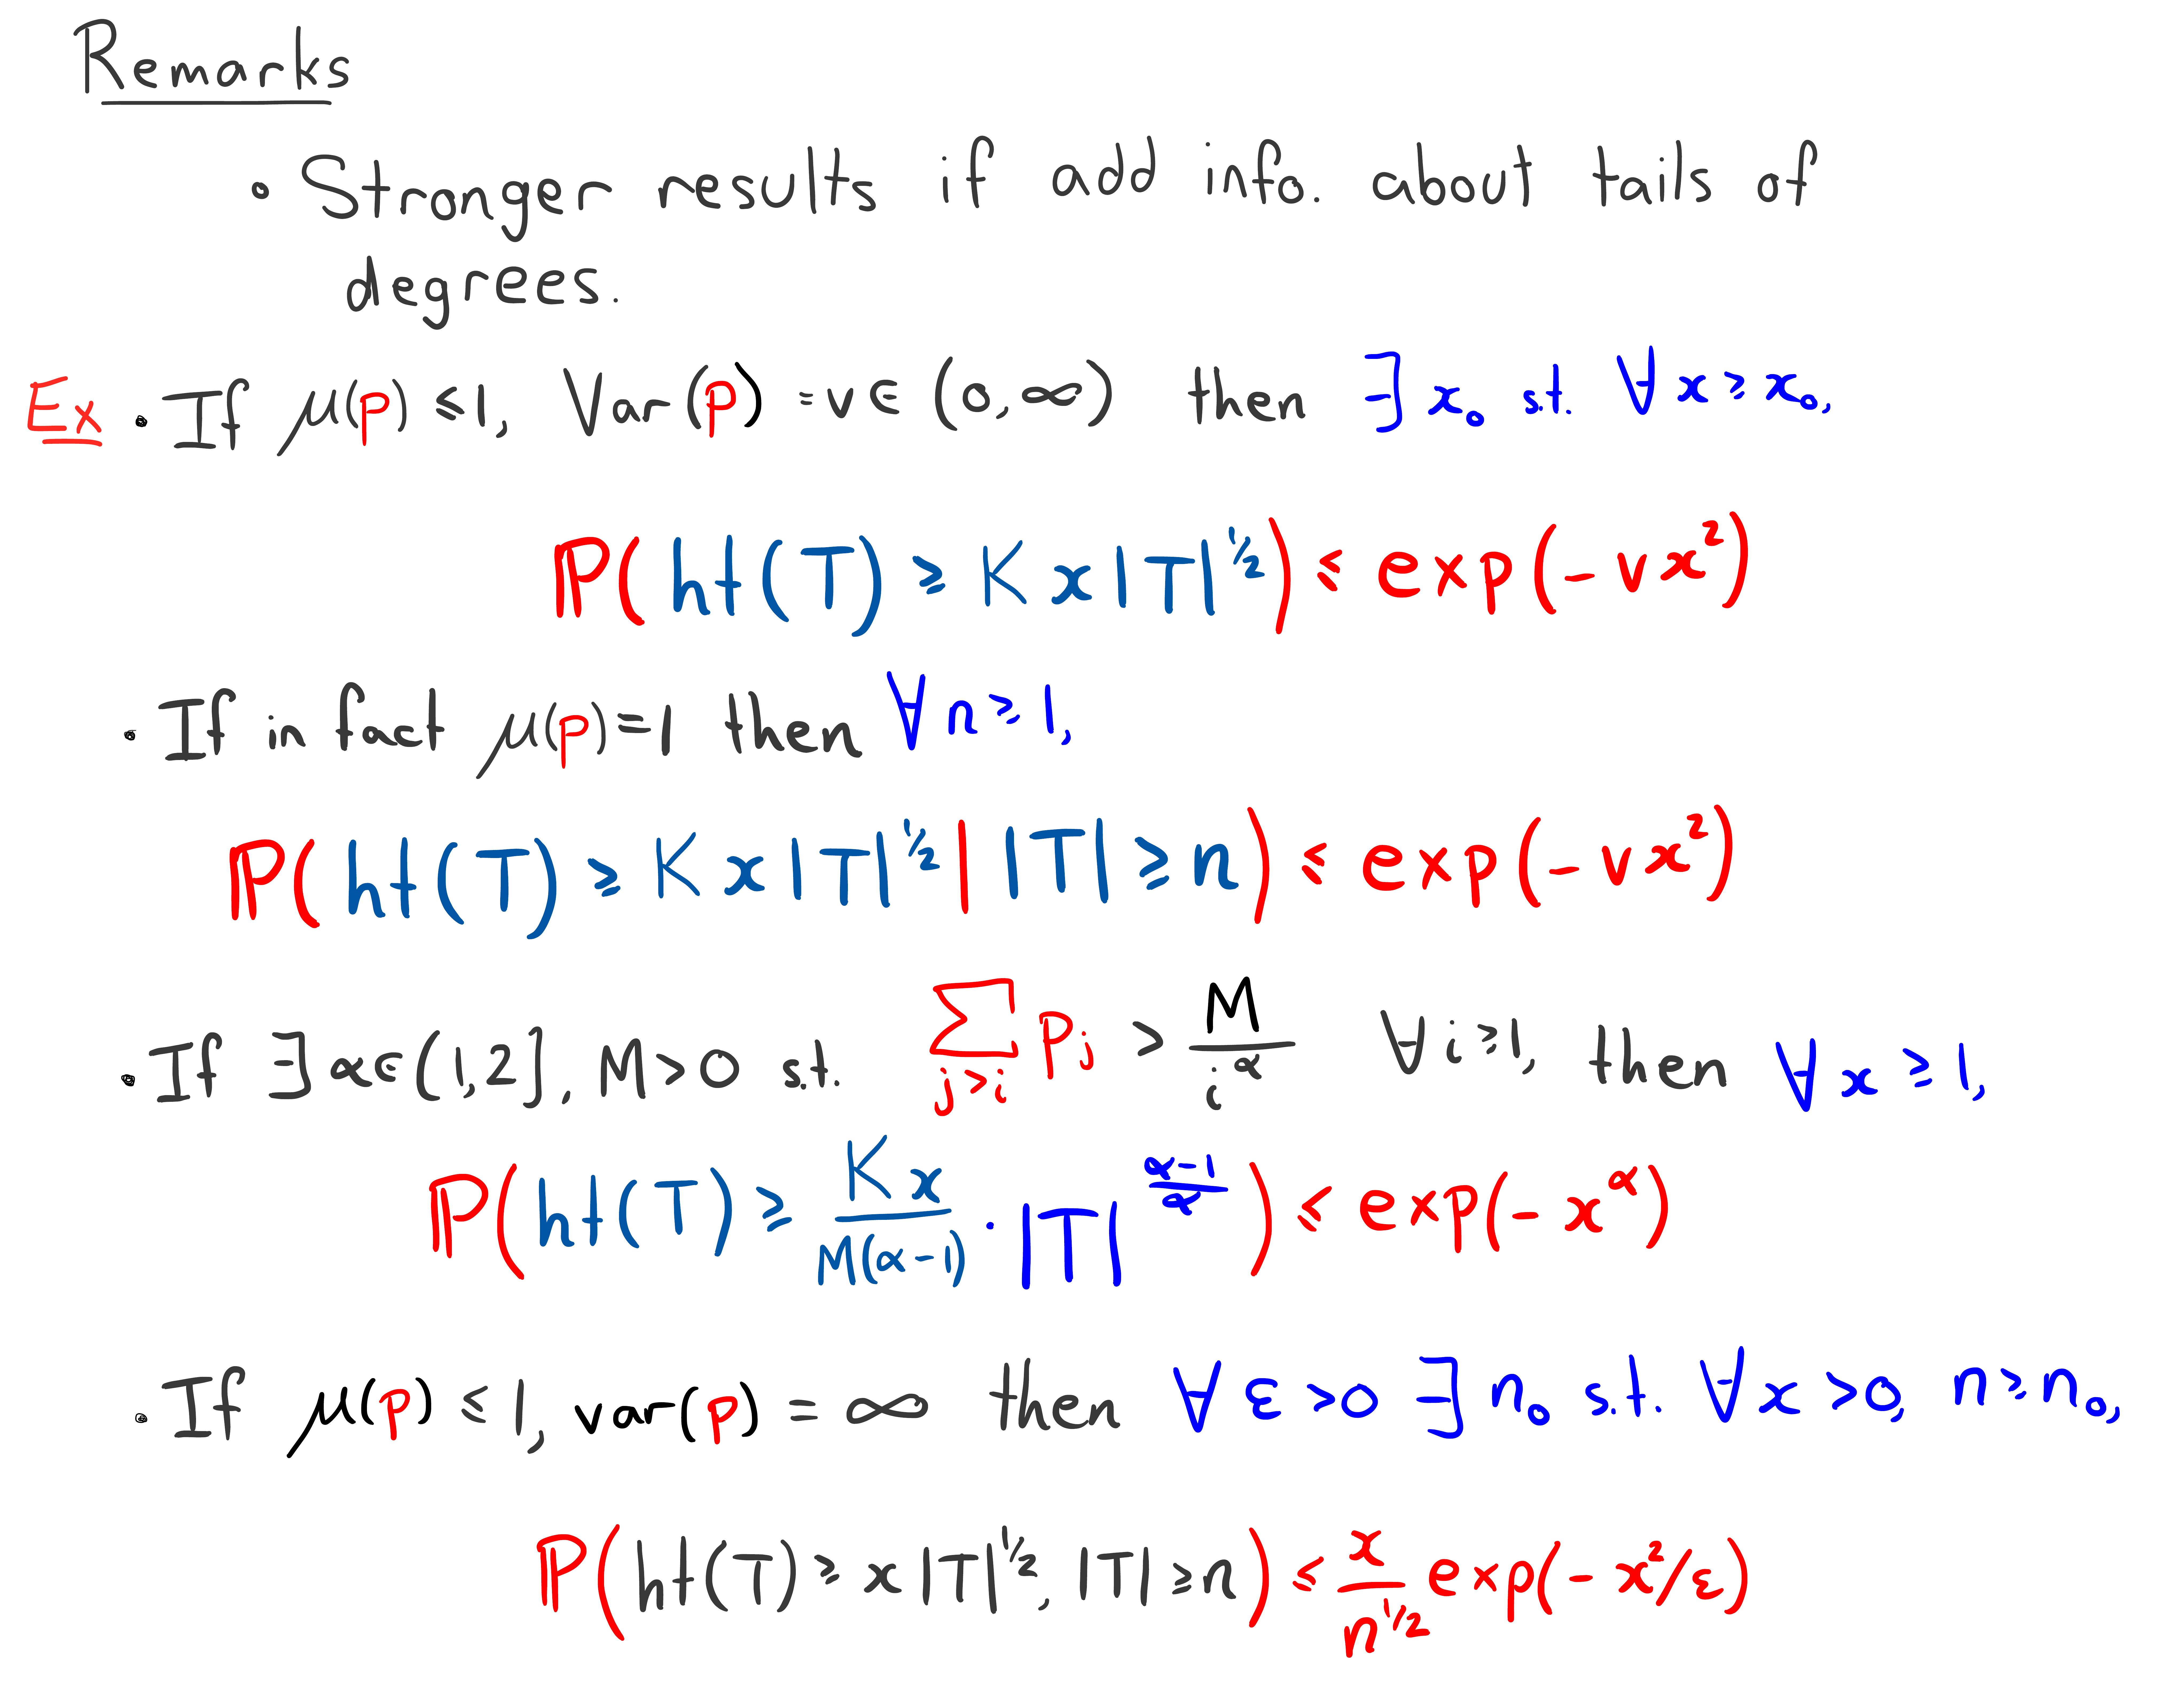 Remarks
• Stronger results if add info. about tails of
degrees.
Ex • If μ(p) ≤ 1, Var(p) = v ∈ (0, ∞) then ∃ x₀ s.t. ∀ x ≥ x₀,
P(ht(T) ≥ K x |T|^{1/2}) ≤ exp(-v x²)
• If in fact μ(p) = 1 then ∀ n ≥ 1,
P(ht(T) ≥ K x |T|^{1/2} | |T| ≥ n) ≤ exp(-v x²)
• If ∃ α ∈ (1, 2], M > 0 s.t. ∑_{j>i} p_j > M/i^α ∀ i ≥ 1, then ∀ x ≥ 1,
P(ht(T) ≥ Kx/M(α-1) · |T|^{(α-1)/α}) ≤ exp(-x^α)
• If μ(p) ≤ 1, var(p) = ∞ then ∀ ε > 0 ∃ n₀ s.t. ∀ x > 0, n ≥ n₀,
P(ht(T) ≥ x |T|^{1/2}, |T| ≥ n) ≤ x/n^{1/2} exp(-x²/ε)